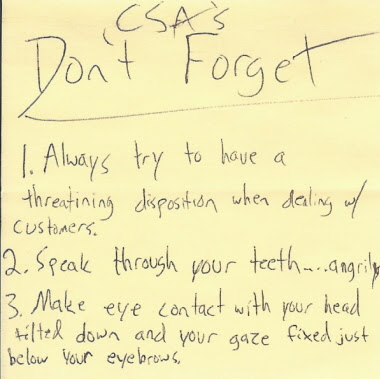 CSA's
Don't Forget
1. Always try to have a
threatining disposition when dealing w/
customers.
2. Speak through your teeth....angrily
3. Make eye contact with your head
tilted down and your gaze fixed just
below your eyebrows.